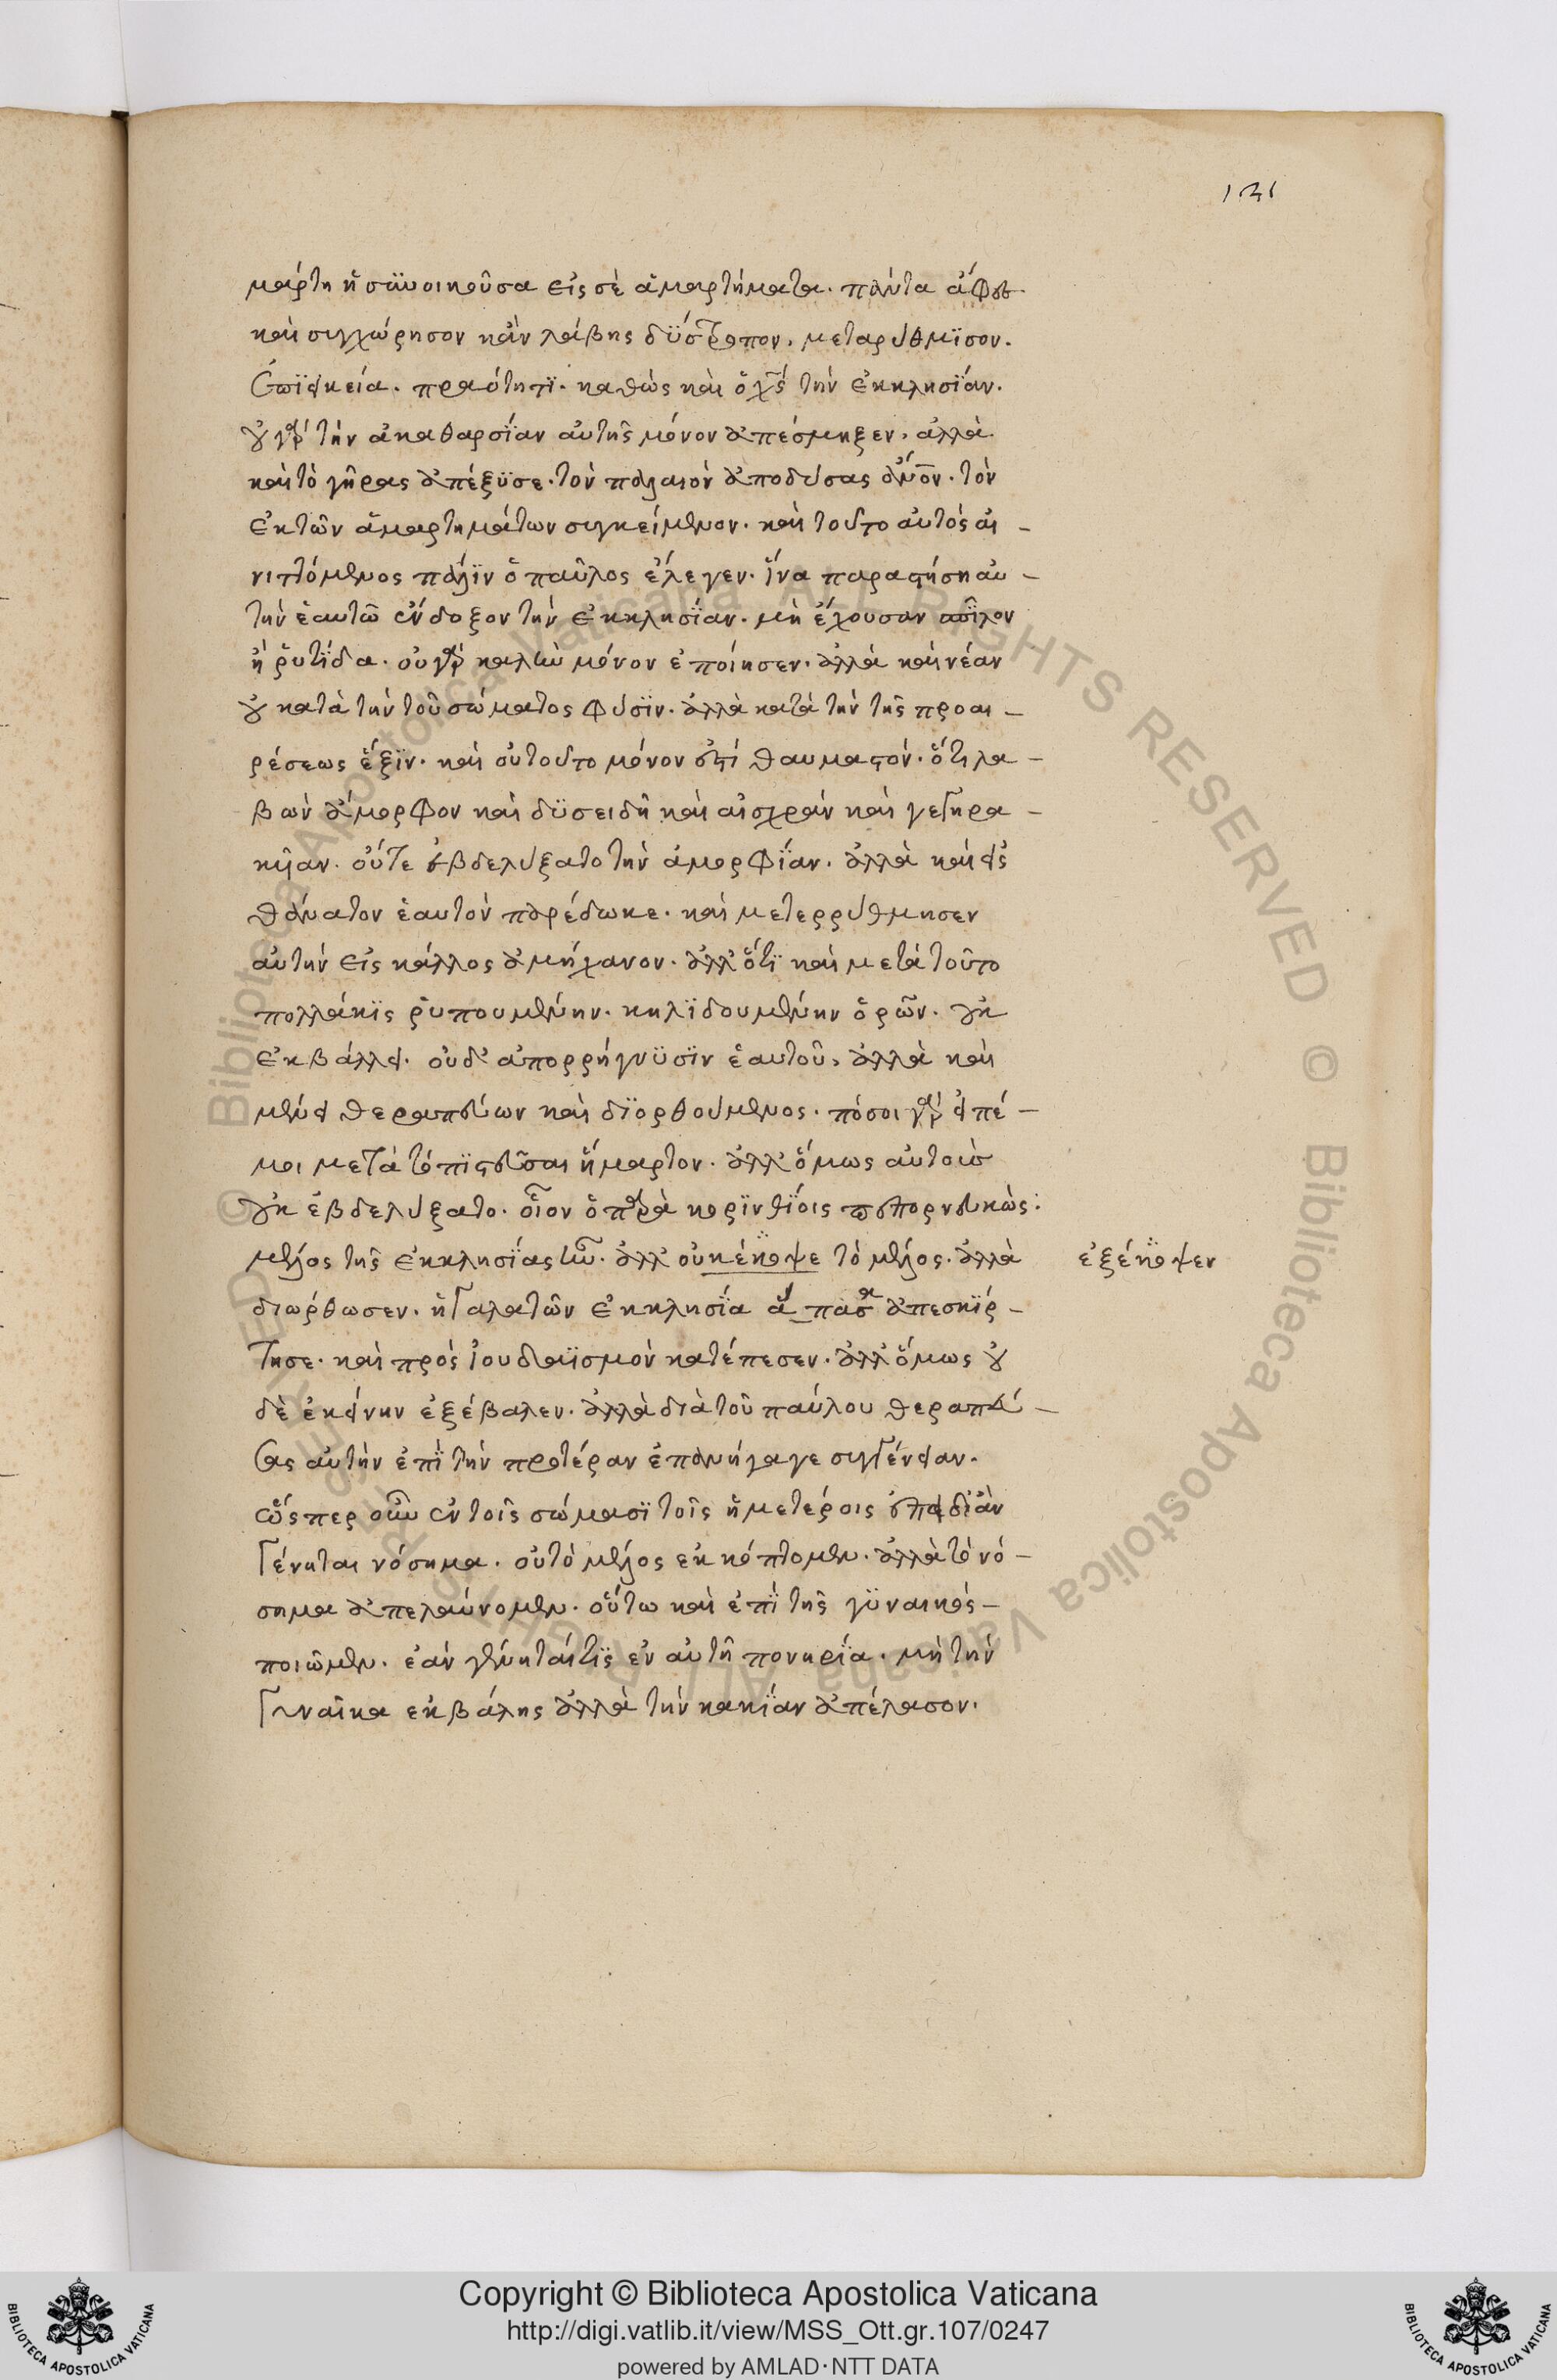 131
μάρτη ἡ συνοικοῦσα εἰς σὲ ἁμαρτήματα. πάντα ἄφες
καὶ συγχώρησον κἂν λάβης δΰστροπον, μεταρύθμϊσον.
ἐπϊεικεία. πραότητϊ. καθὼς καὶ ὁ χς τὴν ἐκκλησΐαν.
οὐ γὰρ τὴν ἀκαθαρσΐαν αὐτῆς μόνον ἀπέσμηξεν, ἀλλὰ
καὶ τὸ γῆρας ἀπέξϋσε. τὸν παλαιὸν ἀποδύσας ἄνον. τὸν
ἐκ τῶν ἁμαρτημάτων συγκείμενον. καὶ τοῦτο αὐτὸς αἰ –
νιττόμενος πάλϊν ὁ παῦλος ἔλεγεν. ἵνα παραστήση αὐ –
τὴν ἑαυτῶ ἔνδοξον τὴν ἐκκλησΐαν. μὴ ἔχουσαν σπῖλον
ἢ ῥυτΐδα. οὐ γὰρ καλὴν μόνον ἐποίησεν. ἀλλὰ καὶ νέαν
οὐ κατὰ τὴν τοῦ σώματος φύσϊν. ἀλλὰ κατὰ τὴν τῆς προαι –
ρέσεως ἕξϊν. καὶ οὐ τοῦτο μόνον ἐστί θαυμαστόν. ὅτι λα –
βὼν ἄμορφον καὶ δϋσειδῆ καὶ αἰσχρὰν καὶ γεγηρα –
κῦαν. οὔτε ἐβδελύξατο τὴν ἀμορφΐαν. ἀλλὰ καὶ εἰς
θάνατον ἑαυτὸν παρέδωκε. καὶ μετερρύθμησεν
αὐτὴν εἰς κάλλος ἀμήχανον. ἀλλ' ὅτϊ καὶ μετὰ τοῦτο
πολλάκϊς ῥυπουμένην. κηλϊδουμένην ὁρῶν. οὐκ
ἐκβάλλει. οὐδ' ἀπορρήγνϋσϊν ἑαυτοῦ, ἀλλὰ καὶ
μένει θεραπεύων καὶ δϊορθούμενος. πόσοι γὰρ εἰπέ –
μοι μετὰ τὸ πϊστεῦσαι ἥμαρτον. ἀλλ' ὅμως αὐτοὺσ
οὐκ ἐβδελύξατο. οἷον ὁ παρὰ κορϊνθΐοις πεπορνευκὼς:
μέλος τῆς ἐκκλησΐας ἦν. ἀλλ' οὐκ έκοψε τὸ μέλος. ἀλλὰ
ἐξέκοψεν
διώρθωσεν. ἡ γαλατῶν ἐκκλησΐα ἅπασα ἀπεσκϊρ –
τησε. καὶ πρὸς ἰουδαϊσμὸν κατέπεσεν. ἀλλ' ὅμως οὐ
δὲ ἐκείνην ἐξέβαλεν. ἀλλὰ διὰ τοῦ παύλου θεραπεύ –
σας αὐτὴν ἐπῒ τὴν προτέραν ἐπανήγαγε συγγένειαν.
ὥσπερ οὖν ἐν τοῖς σώμασϊ τοῖς ἡμετέροις ἐπειδὰν
γένηται νόσημα. οὐ τὸ μέλος ἐκκόπτομεν. ἀλλὰ τὸ νό –
σημα ἀπελαύνομεν. οὕτω καὶ ἐπῒ τῆς γϋναικὸς –
ποιῶμεν. ἐὰν γένηταί τϊς ἐν αὐτῆ πονηρΐα. μὴ τὴν
γυναῖκα ἐκβάλης ἀλλὰ τὴν κακΐαν ἀπέλασον.
© Biblioteca Apostolica Vaticana ALL RIGHTS RESERVED © Biblioteca Apostolica Vaticana ALL RIGHTS RESERVED
BIBLIOTECA APOSTOLICA VATICANA
Copyright © Biblioteca Apostolica Vaticana
http://digi.vatlib.it/view/MSS_Ott.gr.107/0247
powered by AMLAD·NTT DATA
BIBLIOTECA APOSTOLICA VATICANA